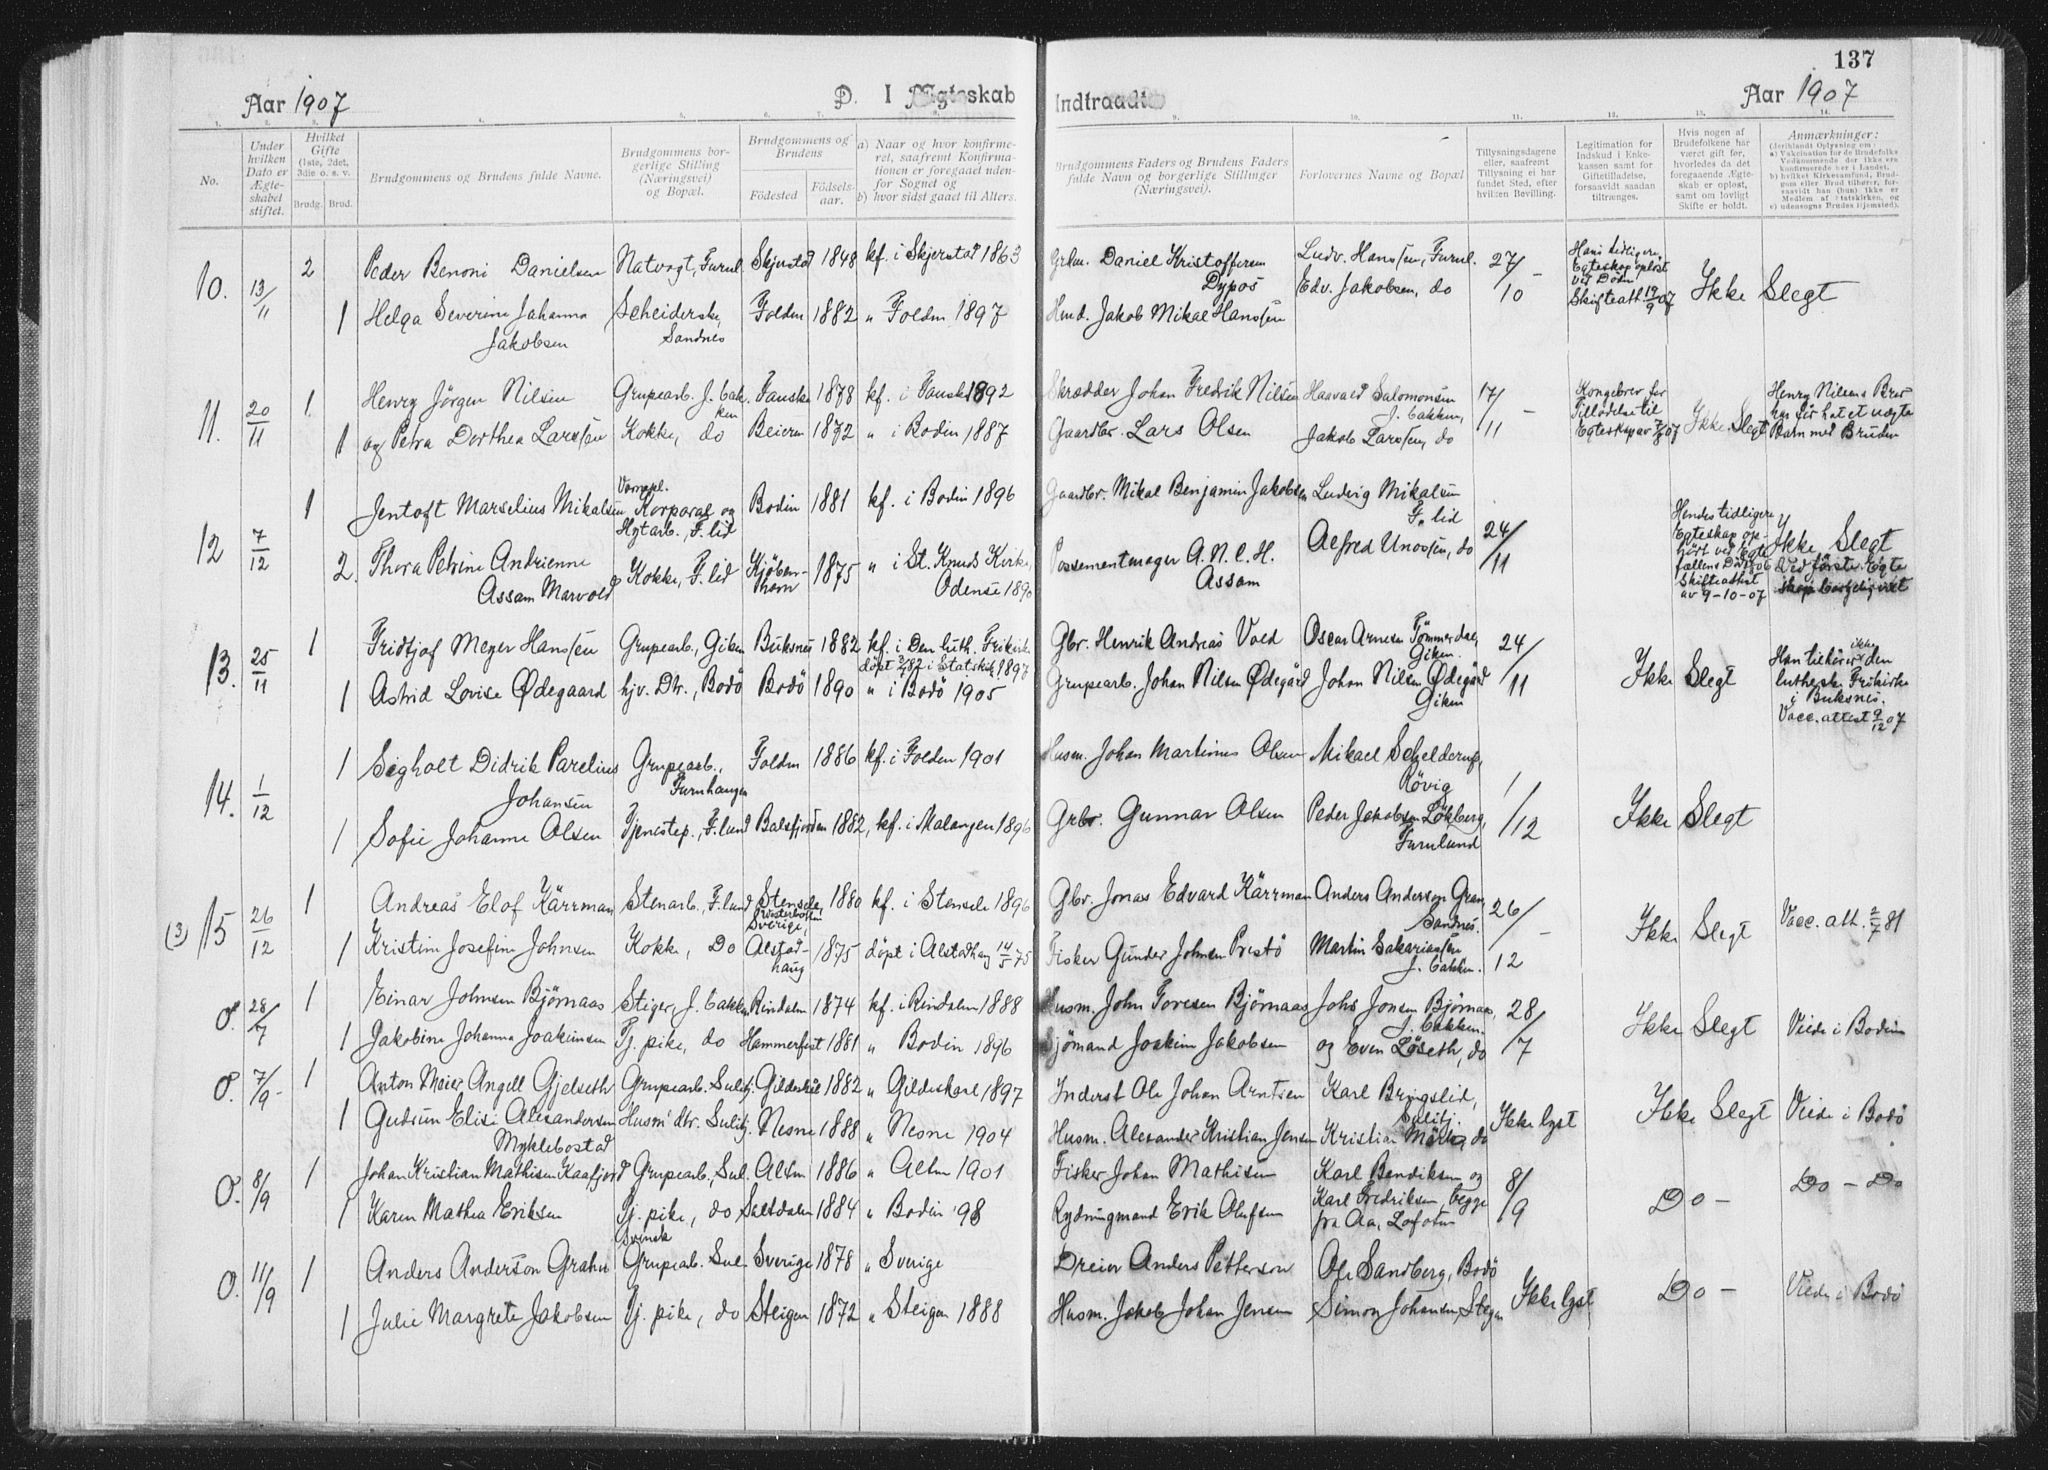 137
Aar 1907
D. I Ægteskab Indtraadte
Aar 1907
1. 2. 3. 4. 5. 6. 7. 9. 10. 11. 12. 13. 14.
No.
Under hvilken Dato er Ægteskabet stiftet.
Hvilket Gifte (1ste, 2det, 3die o. s. v.
Brudg. Brud.
Brudgommens og Brudens fulde Navne.
Brudgommens borgerlige Stilling (Næringsvei) og Bopæl.
Brudgommens og Brudens
Födested
Födselsaar.
a) Naar og hvor konfirmeret, saafremt Konfirmationen er foregaaet udenfor Sognet og
b) hvor sidst gaaet til Alters.
Brudgommens Faders og Brudens Faders fulde Navn og borgerlige Stillinger (Næringsvei).
Forlovernes Navne og Bopæl
Tillysningsdagene eller, saafremt Tillysning ei har fundet Sted, efter hvilken Bevilling.
Legitimation for Indskud i Enkekassen samt for Giftetilladelse, forsaavidt saadan tiltrænges.
Hvis nogen af Brudefolkene har været gift før, hvorledes da det foregaaende Ægteskab er opløst, samt om lovligt Skifte er holdt.
Anmærkninger:
10. 13/11 2 Peder Benoni Danielsen Natvogt, Furul. Skjerstad 1848 kf. i Skjerstad 1863 Grkm. Daniel Kristoffersen Dypos Ludv. Hanssen, Furul. 27/10 – Hans tidligere Egteskap opløst ved Døden Skifteatt. 19/9 07 Ikke Slegt
1 Helga Severine Johanna Jakobsen Scheiderske, Sandnes Folden 1882 " Folden 1897 Hmd. Jakob Mikal Hanssen Edv. Jakobsen, do
11. 20/11 1 Henry Jörgen Nilsen Grupearb. J. bakken Fauske 1878 kf. i Fauske 1892 Skrædder Johan Fredrik Nilsen Haavald Salomonsen J. bakken, 17/11 – Kongebrev for Tilladelse til Egteskap av Ikke Slegt Henry Nilsens Bror har før hat et uægte Barn med Bruden
1 og Petra Dorthea Larssen Kokke, do Beieren 1872 " i Bodin 1887 Gaardbr. Lars Olsen Jakob Larssen, do
12 7/12 1 Jentoft Marselius Mikalsen Vernepl. Korporal og Hytarb., F. lid Bodin 1881 kf. i Bodin 1896 Gaardbr. Mikal Benjamin Jakobsen Ludvig Mikalsen F. lid 24/11
2. Thora Petrine Andrienne Assam Marvold Kokke, F. lid Kjöbenhavn 1875 " i St. Knuds Kirke, Odense 1890 Possementmager A. N. C. H. Assam Alfred Unossen, do Hendes tidligere Egteskap ophört ved Egtefællens Død Skifteattest av 9-10-07 Ikke Slegt Ved første Egteskap
13. 25/11 1 Fridtjof Meyer Hanssen Grupearb., Giken Buksnes 1882 kf. i Den luth. Frikirke döpt i Statskik. 1897 Gbr. Henrik Andreas Vold Oscar Arnesen Tömmerdal, Giken 24/11 Ikke Slegt Han tilhörer ikke den lutherske Frikirke i Buksnes. Vacc. attest 9/12 07
1 Astrid Lovise Ødegaard hjv. Dtr., Bodö Bodö 1890 " i Bodö 1905 Grupearb. Johan Nilsen Ødegård Johan Nilsen Ødegård Giken
14. 1/12 1 Sigholt Didrik Parelius Johansen Grupearb., Furuhaugen Folden 1886 kf. i Folden 1901 Husm. Johan Martinus Olsen Mikael Schelderup, Rövig 1/12 Ikke Slegt
1 Sofie Johanne Olsen Tjenestep., F. lund Balsfjorden 1882, kf. i Malangen 1896 Grbr. Gunnar Olsen Peder Jakobsen Lökberg, Furulund
(3) 15 26/12 1 Andreas Elof Kärrman Stenarb. F. lund Stensele, Westerbotten Sverige, 1880 kf. i Stensele 1896 Gbr. Jonas Edvard Kärrman Anders Anderson Gran Sandnes. 26/12 – Ikke Slegt Vacc. att. 2/7 81
1 Kristine Josefine Johnsen Kokke, Do Alstadhaug 1875 döpt i Alstadhaug 14/5 75 Fisker Gunder Johnsen Prestö Martin Sakariassen J. bakken.
O. 28/7 1 Einar Johnsen Björnaas Stiger, J. bakken Rindalen 1874 kf. i Rindalen 1888 Husm. John Toresen Björnaas Johs Jonsen Björnaas, J. bakken. 28/7 Ikke Slegt Viede i Bodin
1 Jakobine Johanna Joakimsen Tj. pike, do Hammerfest 1881 " Bodin 1896 Sjömand Joakim Jakobsen og Even Löseth, do
O. 7/9 – 1 Anton Meier Angell Gjelseth Grupearb. Sulitj. Gildeskål 1882 " Gildeskaal 1897 Inderst Ole Johan Arntsen Karl Bringslid, Sulitj. Ikke lyst Ikke Slegt Viede i Bodö
1 Gudrun Elise Alexandersen Myklebostad Husm. dtr. Sulitj. Nesne 1888 " Nesne 1904 Husm. Alexander Kristian Jensen Kristian Mörke, do
O. 8/9 1 Johan Kristian Mathisen Kaafjord Grupearb., Sul. Alten 1886 " Alten 1901 Fisker Johan Mathisen Karl Bendiksen og 8/9 Do – Do – Do
1 Karen Mathea Eriksen Tj. pike, do Saltdalen 1884 " Bodin '98 Rydningmand Erik Olufsen Karl Fredriksen, begge fra Aa, Lofoten
O. 11/9 1 Anders Anderson Grahn Svensk Grupearb. Sul. Sverige 1878 " Sverige Dreier Anders Petterson Ole Sandberg, Bodö Ikke lyst Do – Viede i Bodö
1 Julie Margrete Jakobsen Tj. pike, do Steigen 1872 " Steigen 1888 Husm. Jakob Johan Jensen Simon Johansen, Stegen